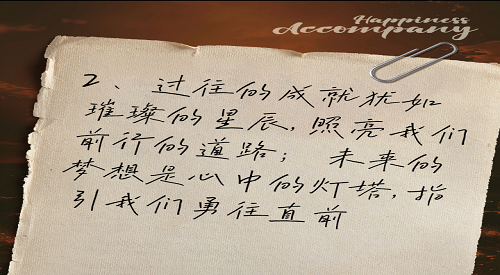 Happiness
Accompany
2、过往的成就犹如
璀璨的星辰，照亮我们
前行的道路；未来的
梦想是心中的灯塔，指
引我们勇往直前